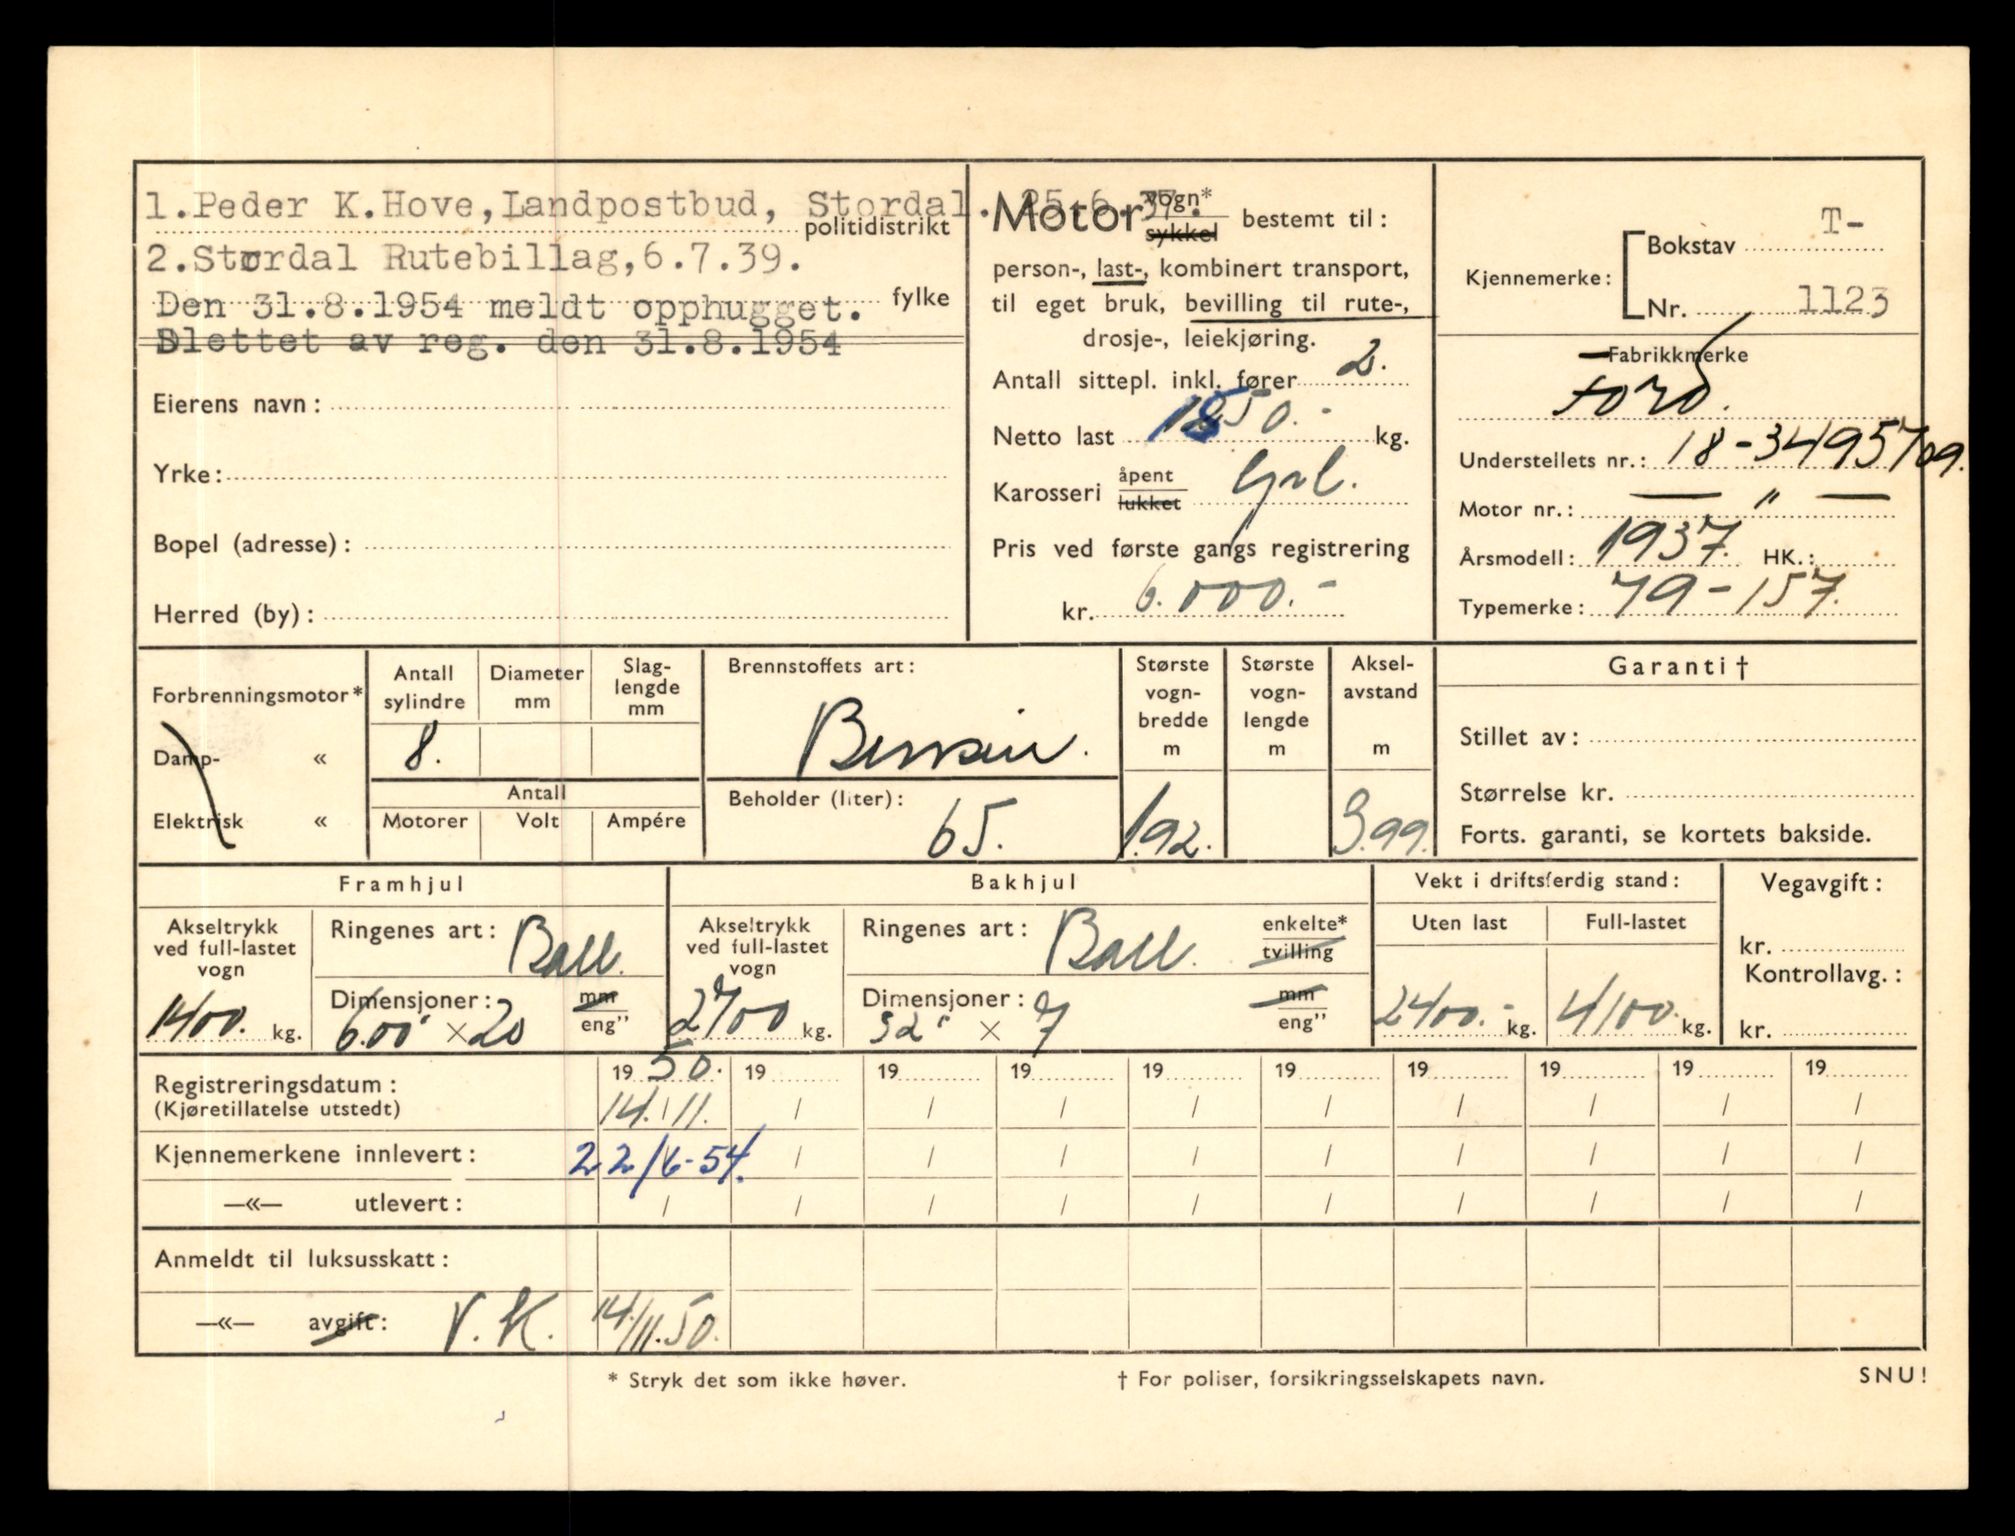 1.Peder K.Hove,Landpostbud, Stordal. 25.6.37.
politidistrikt
2.Stordal Rutebillag,6.7.39.
Den 31.8.1954 meldt opphugget.
fylke
Slettet av reg. den 31.8.1954
Eierens navn:
Yrke:
Bopel (adresse):
Herred (by):
Motor vogn* sykkel bestemt til:
person-, last-, kombinert transport,
til eget bruk, bevilling til rute-,
drosje-, leiekjøring.
Antall sittepl. inkl. fører 2.
Netto last 50.- kg.
Karosseri åpent lukket
Pris ved første gangs registrering
kr. 6.000.-
Kjennemerke: Bokstav T-
Nr. 1123
Fabrikkmerke
Ford.
Understellets nr.: 18-3495709.
Motor nr.: — " —
Årsmodell: 1937. HK.:
Typemerke: 79-157.
Forbrenningsmotor*
Damp- «
Elektrisk «
Antall sylindre
Diameter mm
Slag-lengde mm
8.
Antall
Motorer Volt Ampére
Brennstoffets art:
Bensin.
Beholder (liter):
65.
Største vogn-bredde m
1.92.
Største vogn-lengde m
Aksel-avstand m
3.99.
Garanti †
Stillet av:
Størrelse kr.
Forts. garanti, se kortets bakside.
Framhjul
Akseltrykk ved full-lastet vogn
1400. kg.
Ringenes art: Ball.
Dimensjoner: mm eng”
6.00" × 20
Bakhjul
Akseltrykk ved full-lastet vogn
2700 kg.
Ringenes art: Ball. enkelte* tvilling
Dimensjoner: mm eng”
32" × 7
Vekt i driftsferdig stand:
Uten last Full-lastet
2400.- kg. 4100. kg.
Vegavgift:
kr.
Kontrollavg.:
kr.
Registreringsdatum: 19 50. 19 19 19 19 19 19 19 19 19
(Kjøretillatelse utstedt) 14. / 11. / / / / / / / / /
Kjennemerkene innlevert: 22/6-54. / / / / / / / / /
—«— utlevert: / / / / / / / / / /
Anmeldt til luksusskatt:
—«— avgift: V.K. 14/11.50.
* Stryk det som ikke høver.
† For poliser, forsikringsselskapets navn.
SNU!